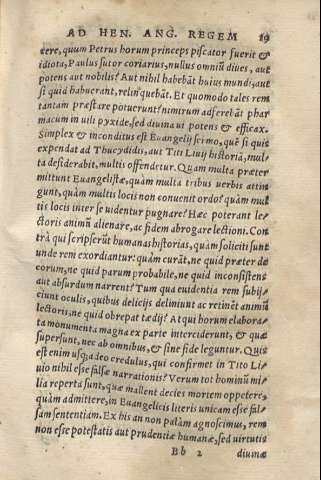 AD HEN. ANG. REGEM 19
vere, quum Petrus horum princeps piscator fuerit &
idiota, Paulus sutor coriarius, nullus omniũ dives, aut
potens aut nobilis? Aut nihil habebãt huius mundi, aut
si quid habuerant, relinquebãt. Et quomodo tales rem
tantam præstare potuerunt? nimirum adferebãt phar
macum in vili pyxide, sed diuina ut potens & efficax.
Simplex & inconditus est Euangelij sermo, quẽ si quis
expendat ad Thucydidis, aut Titi Liuij historiã, mul
ta desiderabit, multis offendetur. Quam multa præter
mittunt Euangelistæ, quàm multa tribus verbis attin
gunt, quàm multis locis non conuenit ordo? quàm mul
tis locis inter se uidentur pugnare? Hæc poterant le
ctoris animũ alienare, ac fidem abrogare lectioni. Con
trà qui scripserũt humanas historias, quàm soliciti sunt
unde rem exordiantur: quàm curãt, ne quid præter de
corum, ne quid parum probabile, ne quid inconsistens
aut absurdum narrent? Tum qua euidentia rem subij
ciunt oculis, quibus delicijs deliniunt ac retinẽt animũ
lectoris, ne quid obrepat tædij? At qui horum elabora
ta monumenta magna ex parte interciderunt, & quæ
supersunt, nec ab omnibus, & sine fide leguntur. Quis
est enim usq; adeo credulus, qui confirmet in Tito Li
uio nihil esse falsæ narrationis? Verum tot hominũ mi
lia reperta sunt, quæ mallent decies mortem oppetere,
quàm admittere, in Euangelicis literis unicam esse fal
sam sententiam. Ex his an non palàm agnoscimus, rem
non esse potestatis aut prudentiæ humanæ, sed uirtutis
Bb 2 diuinæ